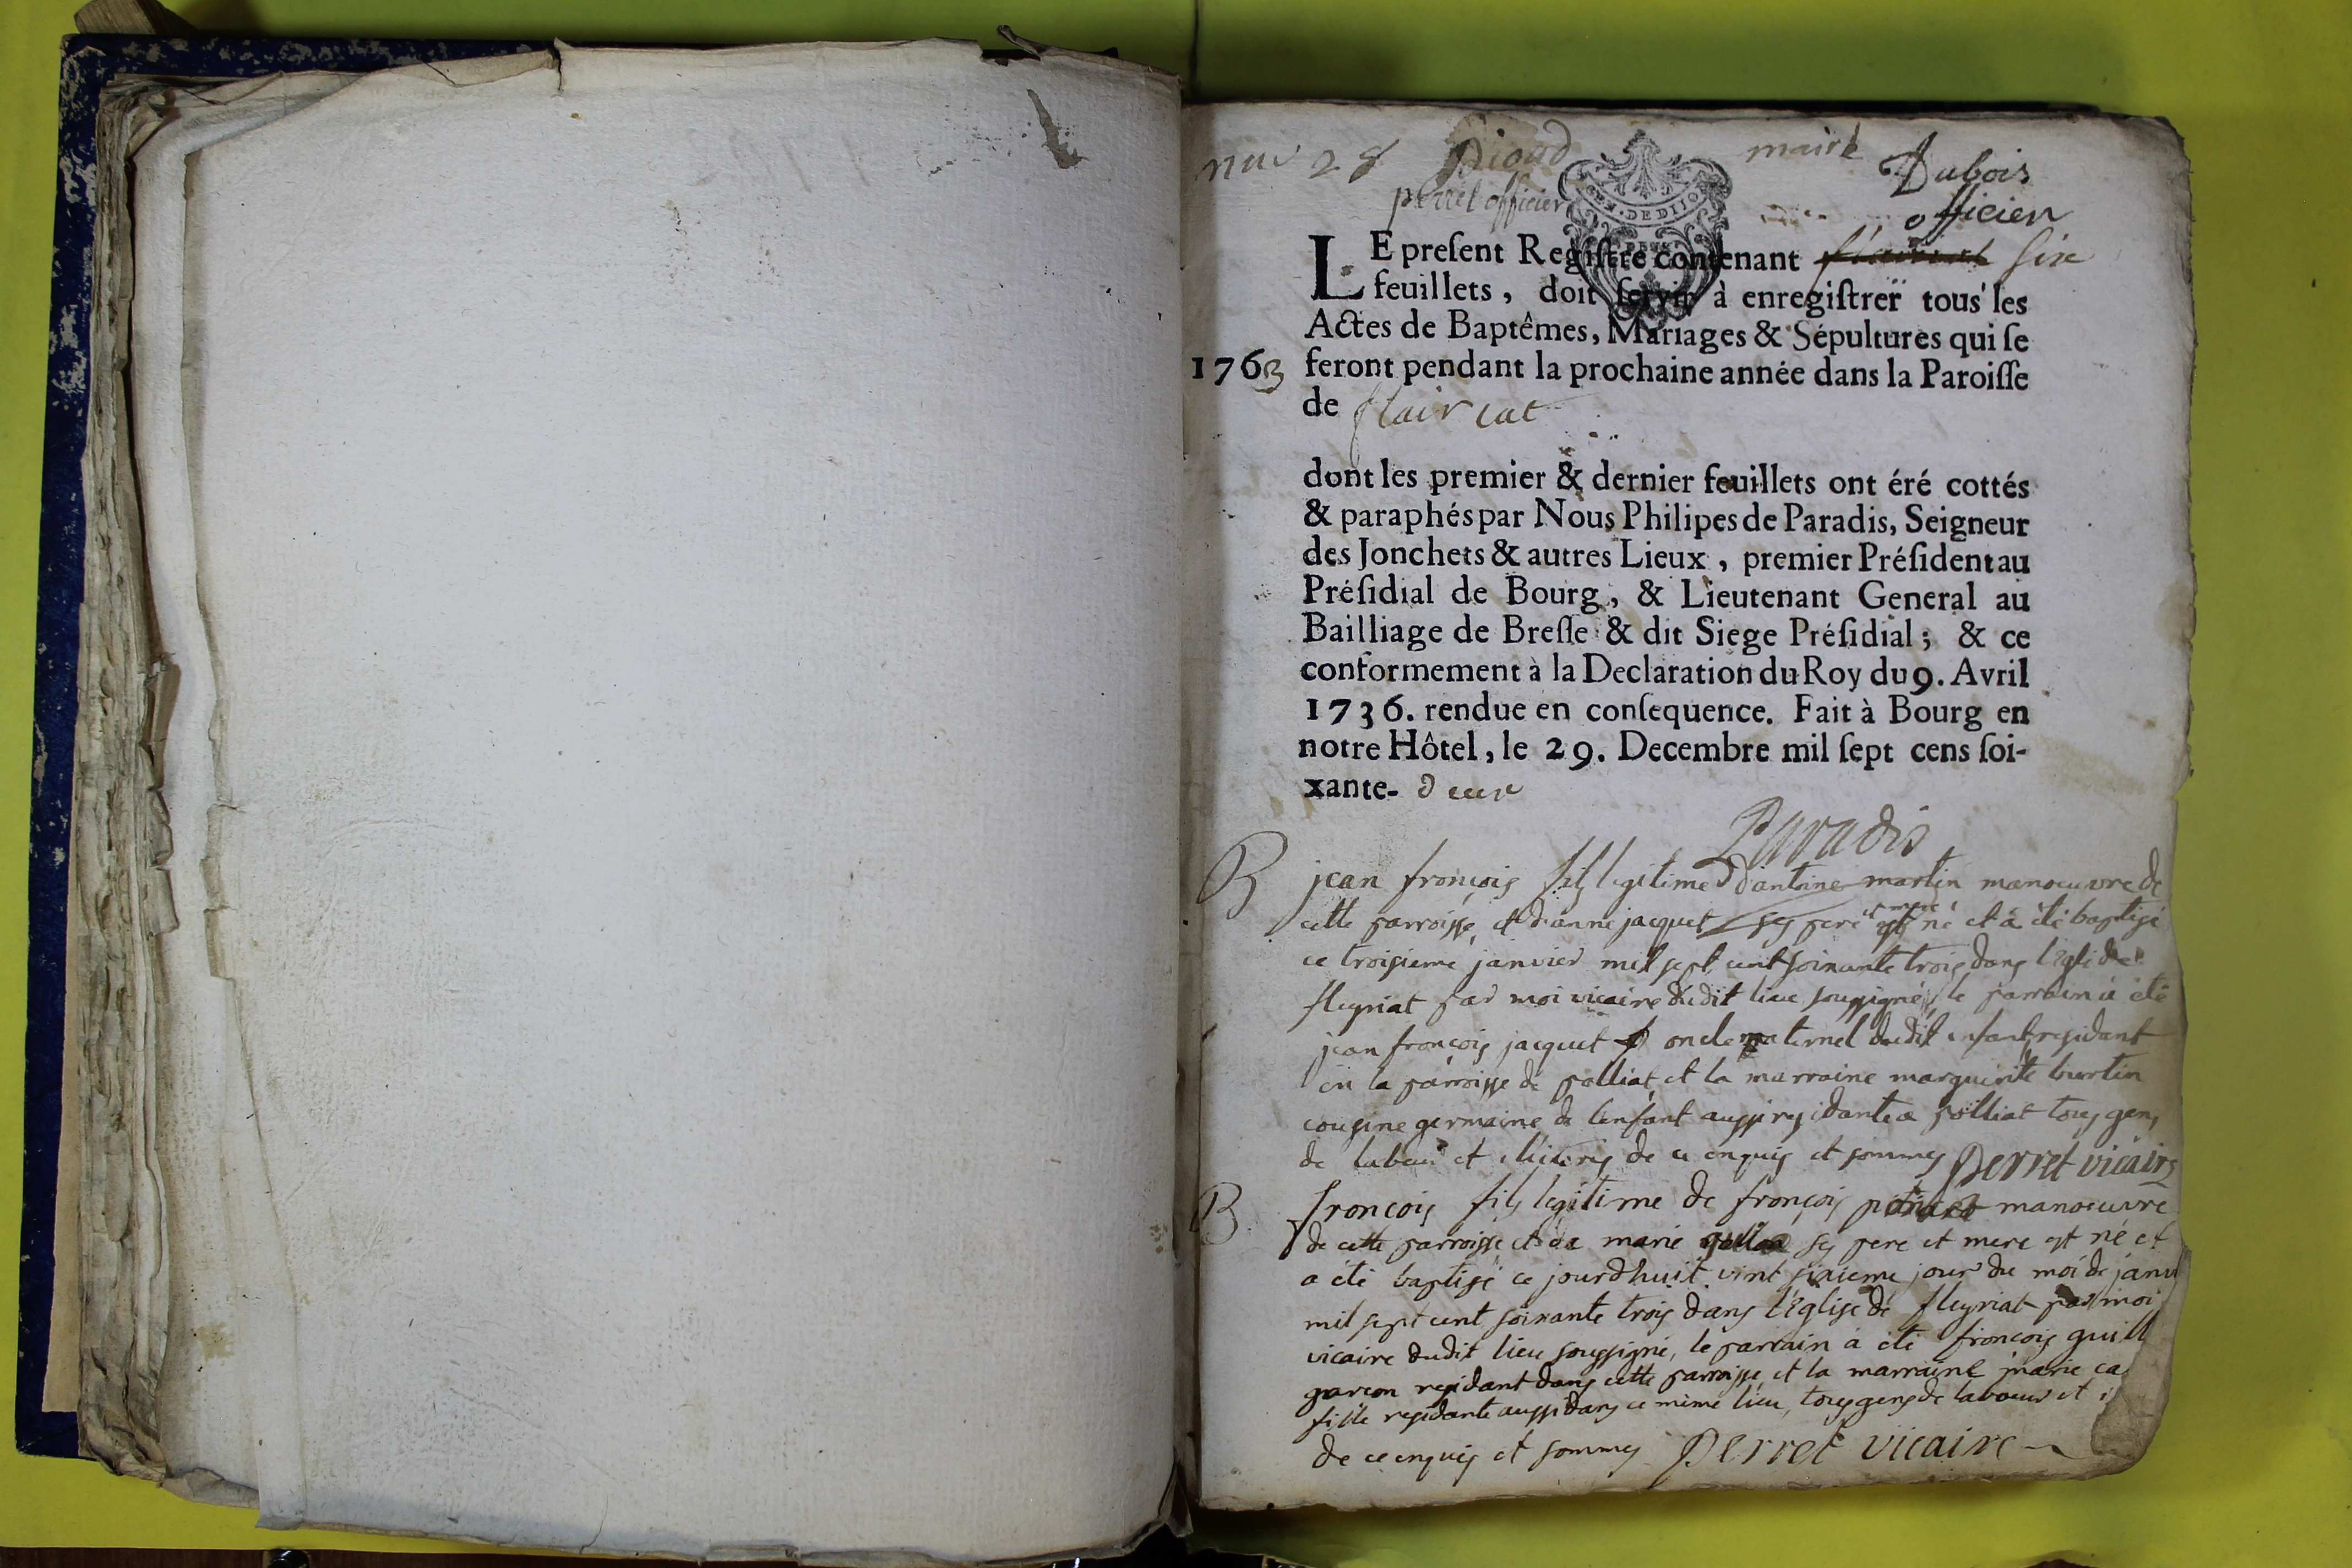 28 Picod maire Dubois
perret officier officier
GEN. DE DIJON
LE preſent Regiſtre contenant six
feuillets, doit ſervir à enregiſtrer tous les
Actes de Baptêmes, Mariages & Sépultures qui ſe
1763 feront pendant la prochaine année dans la Paroiſſe
de flairiat
dont les premier & dernier feuillets ont éré cottés
& paraphés par Nous Philipes de Paradis, Seigneur
des Jonchets & autres Lieux, premier Préſident au
Préſidial de Bourg, & Lieutenant General au
Bailliage de Breſſe & dit Siege Préſidial; & ce
conformement à la Declaration du Roy du 9. Avril
1736. rendue en conſequence. Fait à Bourg en
notre Hôtel, le 29. Decembre mil ſept cens ſoi-
xante- deux
Paradis
B jean françois fils legitime d'antoine martin manoeuvre de
cette parroisse, et d'anne jacquet ses pere et mere est né et a été baptisé
ce troisieme janvier mil sept cent soixante trois dans l'eglise de
fleyriat par moi vicaire dudit lieu soussigné, le parrain a été
jean françois jacquet oncle maternel dudit enfant residant
en la parroisse de polliat, et la marraine marguerite burtin
cousine germaine de l'enfant aussi residante a polliat tous gens
de labeur et illiterés de ce enquis et sommes Perret vicaire
B françois fils legitime de françois manoeuvre
de cette parroisse et de marie ses pere et mere est né et
a été baptisé ce jourdhuit vint sixieme jour du moi de janv
mil sept cent soixante trois dans l'eglise de fleyriat par moi
vicaire dudit lieu soussigné, le parrain a été françois guill
garcon residant dans cette parroisse, et la marraine marie ca
fille residante aussi dans ce même lieu, tous gens de labeur et i
de ce enquis et sommes Perret vicaire